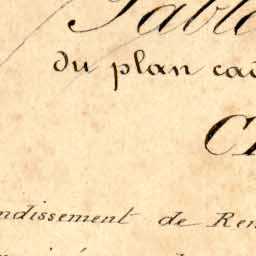 Table
du plan cad
C
ndissement de Ren